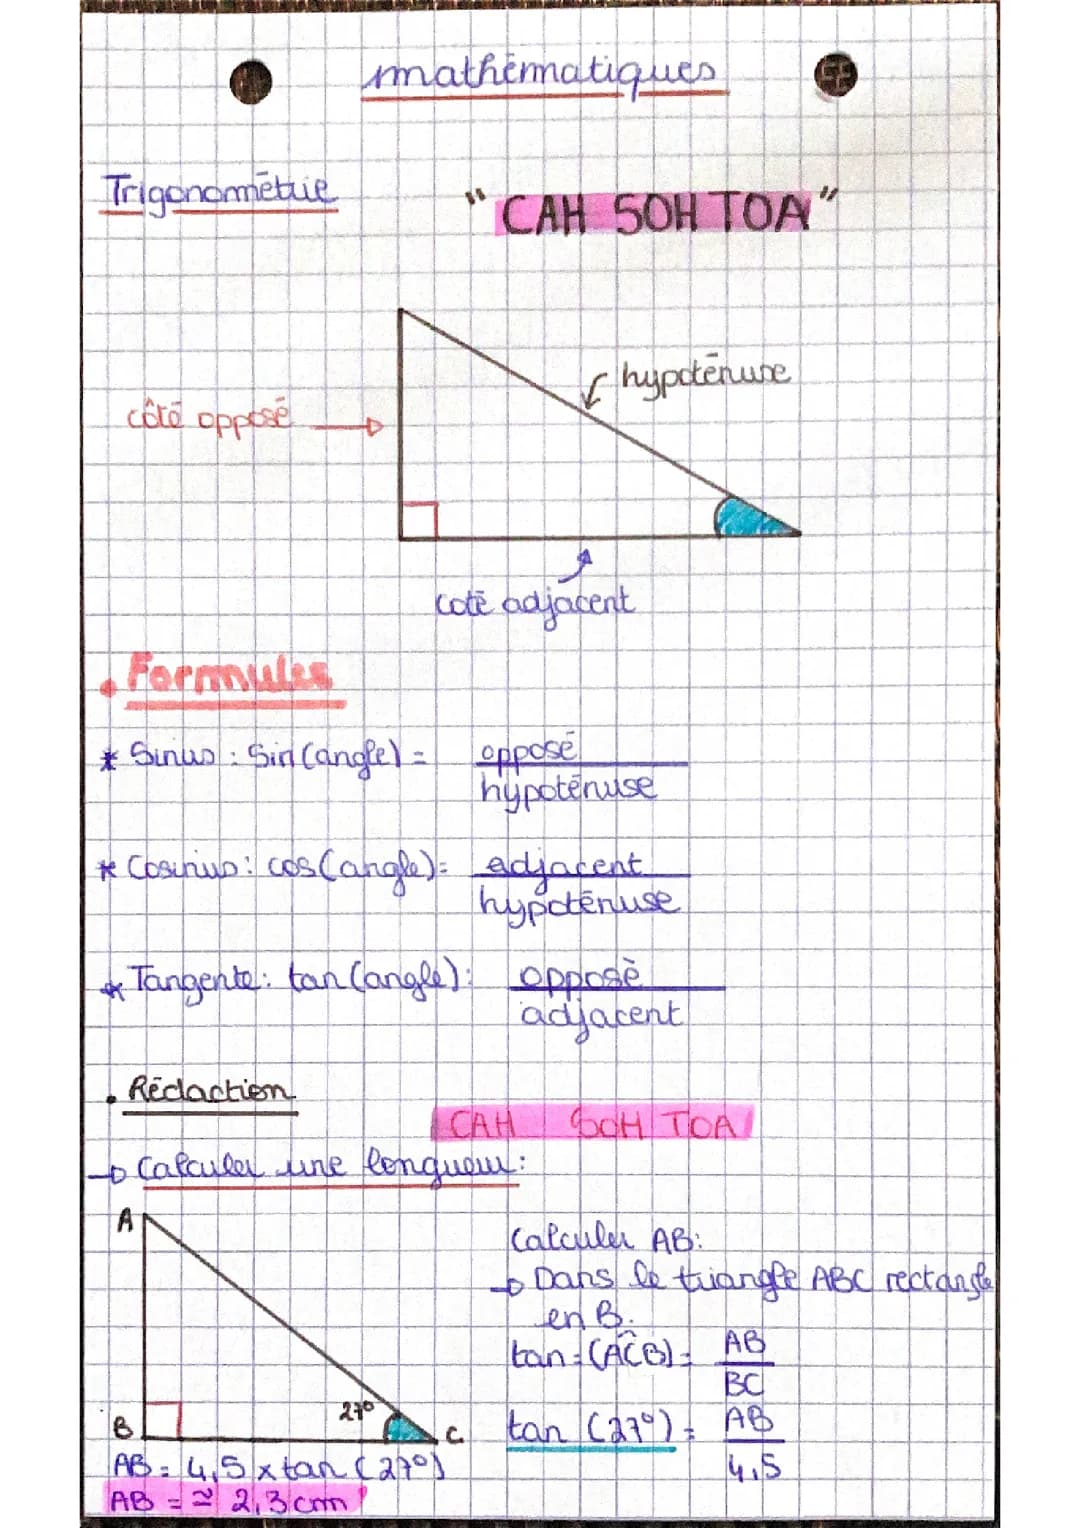 mathématiques
Trigonométrie
"CAH SOH TOA"
hypoténuse
côté opposé
coté adjacent
• Formules
* Sinus : Sin (angle) = opposé
hypoténuse
* Cosinus : cos (angle) = adjacent
hypoténuse
* Tangente : tan (angle) : opposé
adjacent
• Rédaction
CAH SOH TOA
→ Calculer une longueur :
A
Calculer AB :
→ Dans le triangle ABC rectangle
en B.
tan = (ACB) = AB
BC
27°
B
C
tan (27°) = AB
4,5
AB = 4,5 x tan (27°)
AB = ≈ 2,3 cm